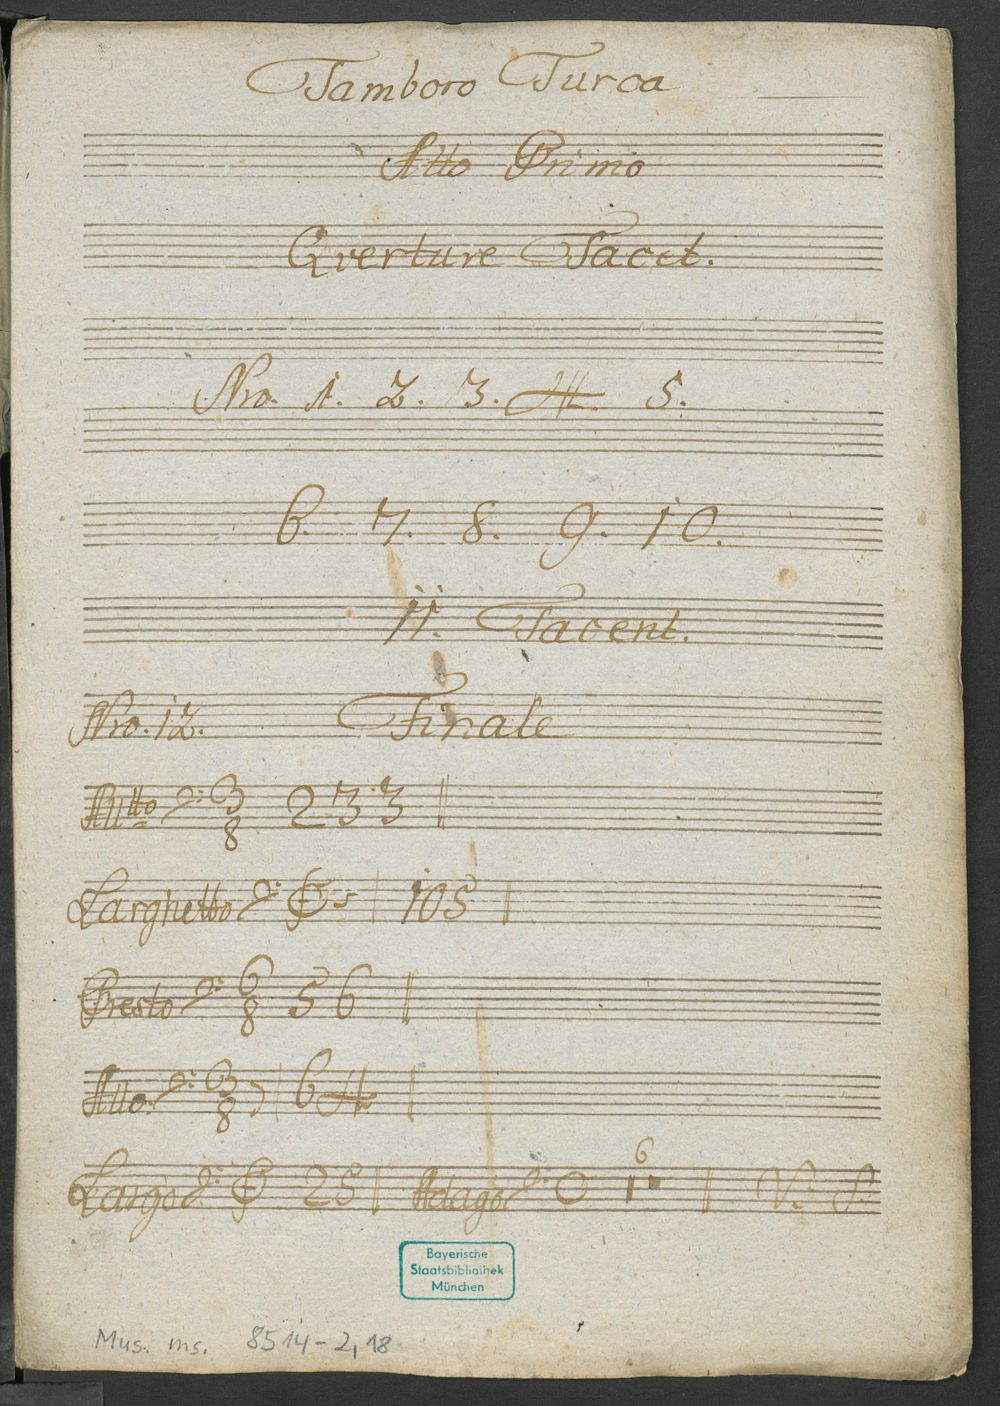 Tamboro Turca
Atto Primo
Overture Tacet.
Nro. 1. 2. 3. 4. 5.
6. 7. 8. 9. 10.
11. Tacent.
Nro. 12. Finale
Alltto 3/8 233
Larghetto 105
Presto 6/8 56
Allo. 3/8 64
Largo 25 Adago 6 V. S.
Bayerische
Staatsbibliothek
München
Mus. ms. 8514-2,18